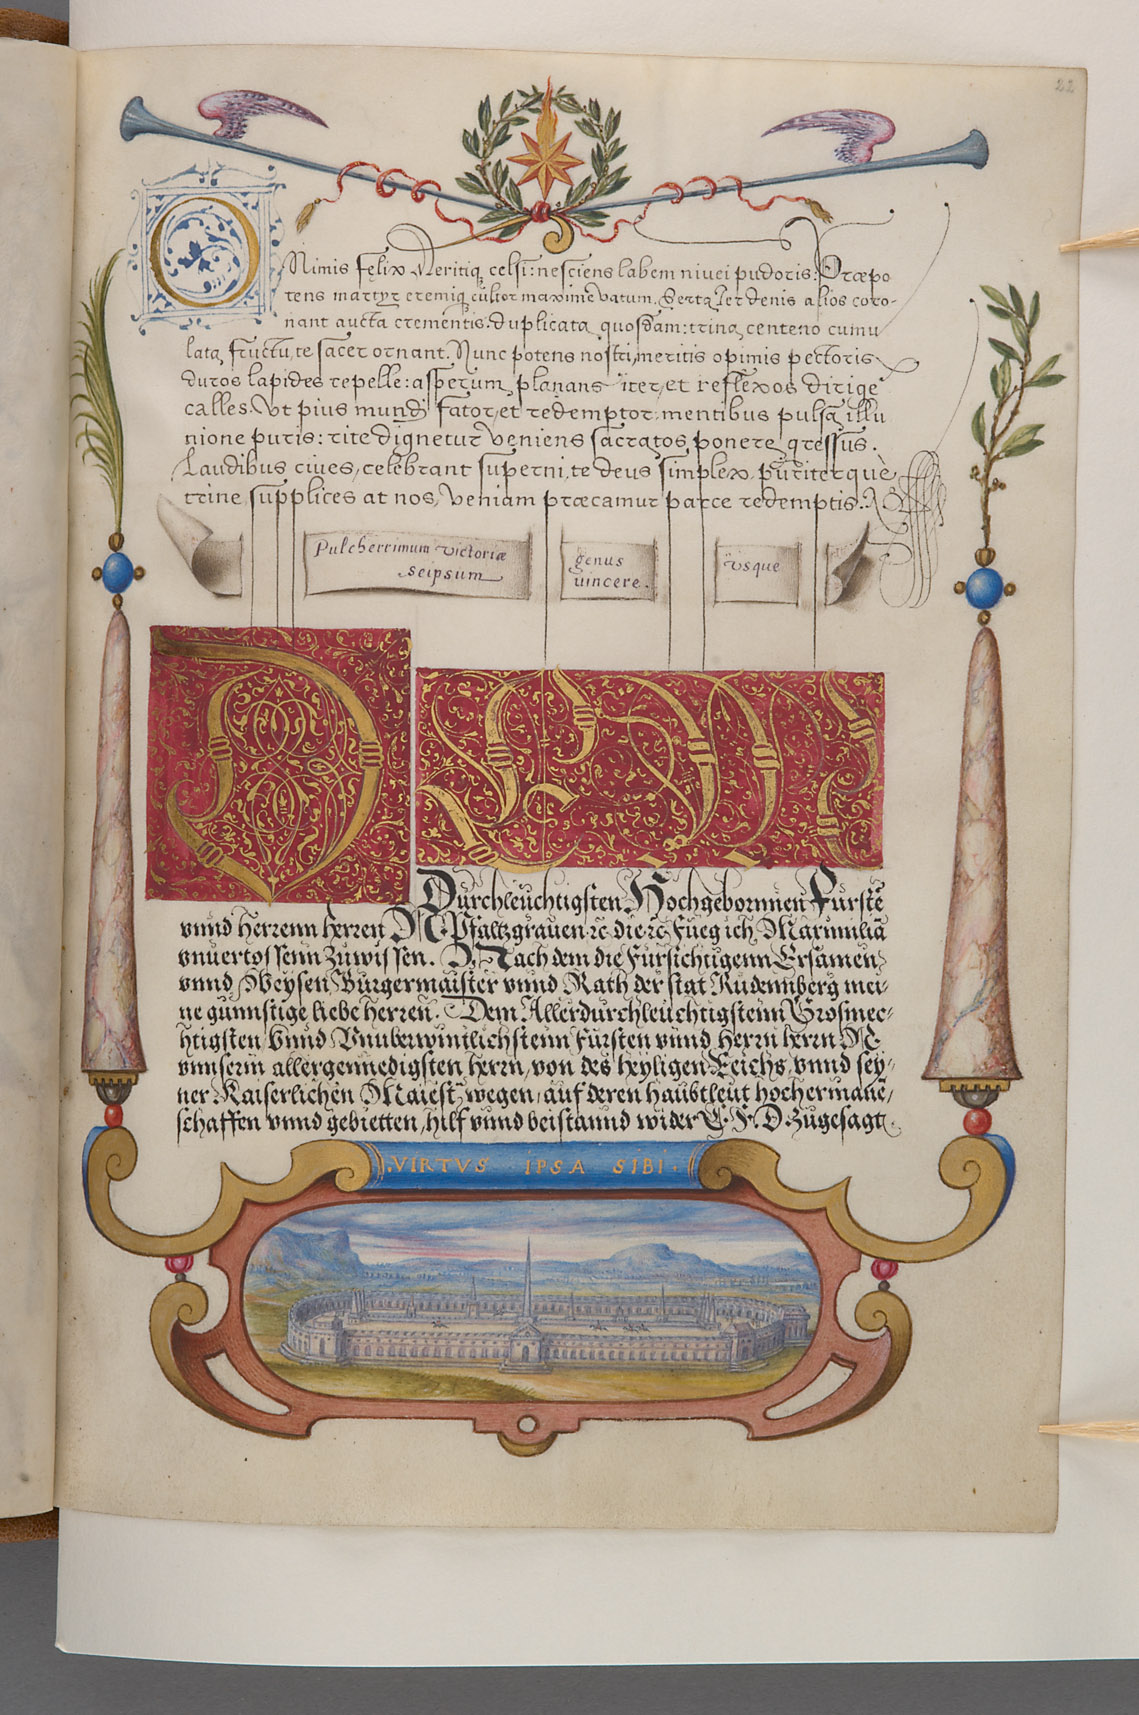 22
O Nimis felix Meritiq, celsi: nesciens labem niuei pudoris: Præpo
tens martyr eremiq, cultor maxime vatum. Serta ter denis alios coro-
nant aucta crementis: duplicata quosdam: trina centeno cumu
lata fructu, te sacer ornant. Nunc potens nostri, meritis opimis pectoris
duros lapides repelle: asperum planans iter, et reflexos dirige
calles. Vt pius mundi sator, et redemptor: mentibus pulsa illu
nione puris: rite dignetur veniens sacratos ponere gressus.
Laudibus ciues, celebrant superni, te deus simplex, pariterquè,
trine, supplices at nos, veniam præcamur parce redemptis.
Pulcherrimum victoriæ
seipsum
genus
uincere.
vsque
D EM
Durchleuchtigsten Hochgebornnen Fürstē
vnnd Herrenn herren N. Pfaltzgrauen ꝛc die ꝛc Füeg ich Maximiliā
vnuertossenn zuwissen. Nach dem die Fürsichtigenn Ersamen
vnnd Weysen Burgermaister vnnd Rath der stat Nüdernnberg mei-
ne günnstige liebe herren. Dem Allerdurchleüchtigstenn Grosmec-
htigsten Vnnd Vnuberwintlichstenn Fürsten vnnd Herrn herrn N.
vnnserm allergennedigsten herrn, von des heyligen Reichs, vnnd sey-
ner Kaiserlichen Maiest. wegen, auf deren haubtleut hochermane,
schaffen vnnd gebietten, hilf vnnd beistannd wider E. F. D. zugesagt.
.VIRTVS IPSA SIBI.